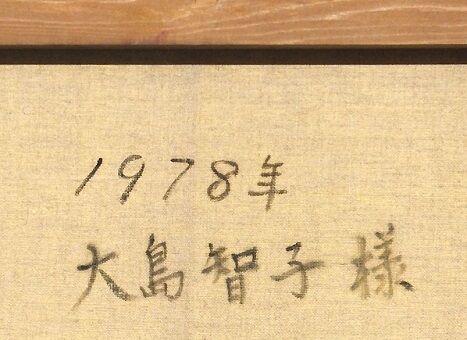 1978年
大島智子様